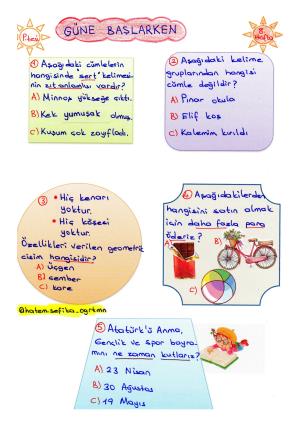 P.tesi
GÜNE BAŞLARKEN
8. Hafta
1) Aşağıdaki cümlelerin
hangisinde "sert" kelimesi-
nin zıt anlamlısı vardır?
A) Minnoş yükseğe çıktı.
B) Kek yumuşak olmuş.
C) Kuşum çok zayıfladı.
2) Aşağıdaki kelime
gruplarından hangisi
cümle değildir?
A) Pınar okula
B) Elif koş
C) Kalemim kırıldı
3) * Hiç kenarı
yoktur.
* Hiç köşesi
yoktur.
Özellikleri verilen geometrik
cisim hangisidir?
A) üçgen
B) çember
C) kare
4) Aşağıdakilerden
hangisini satın almak
için daha fazla para
öderiz?
A)
B)
C)
@hatem.sefika_ogrtmn
5) Atatürk'ü Anma,
Gençlik ve Spor bayra-
mını ne zaman kutlarız?
A) 23 Nisan
B) 30 Ağustos
C) 19 Mayıs